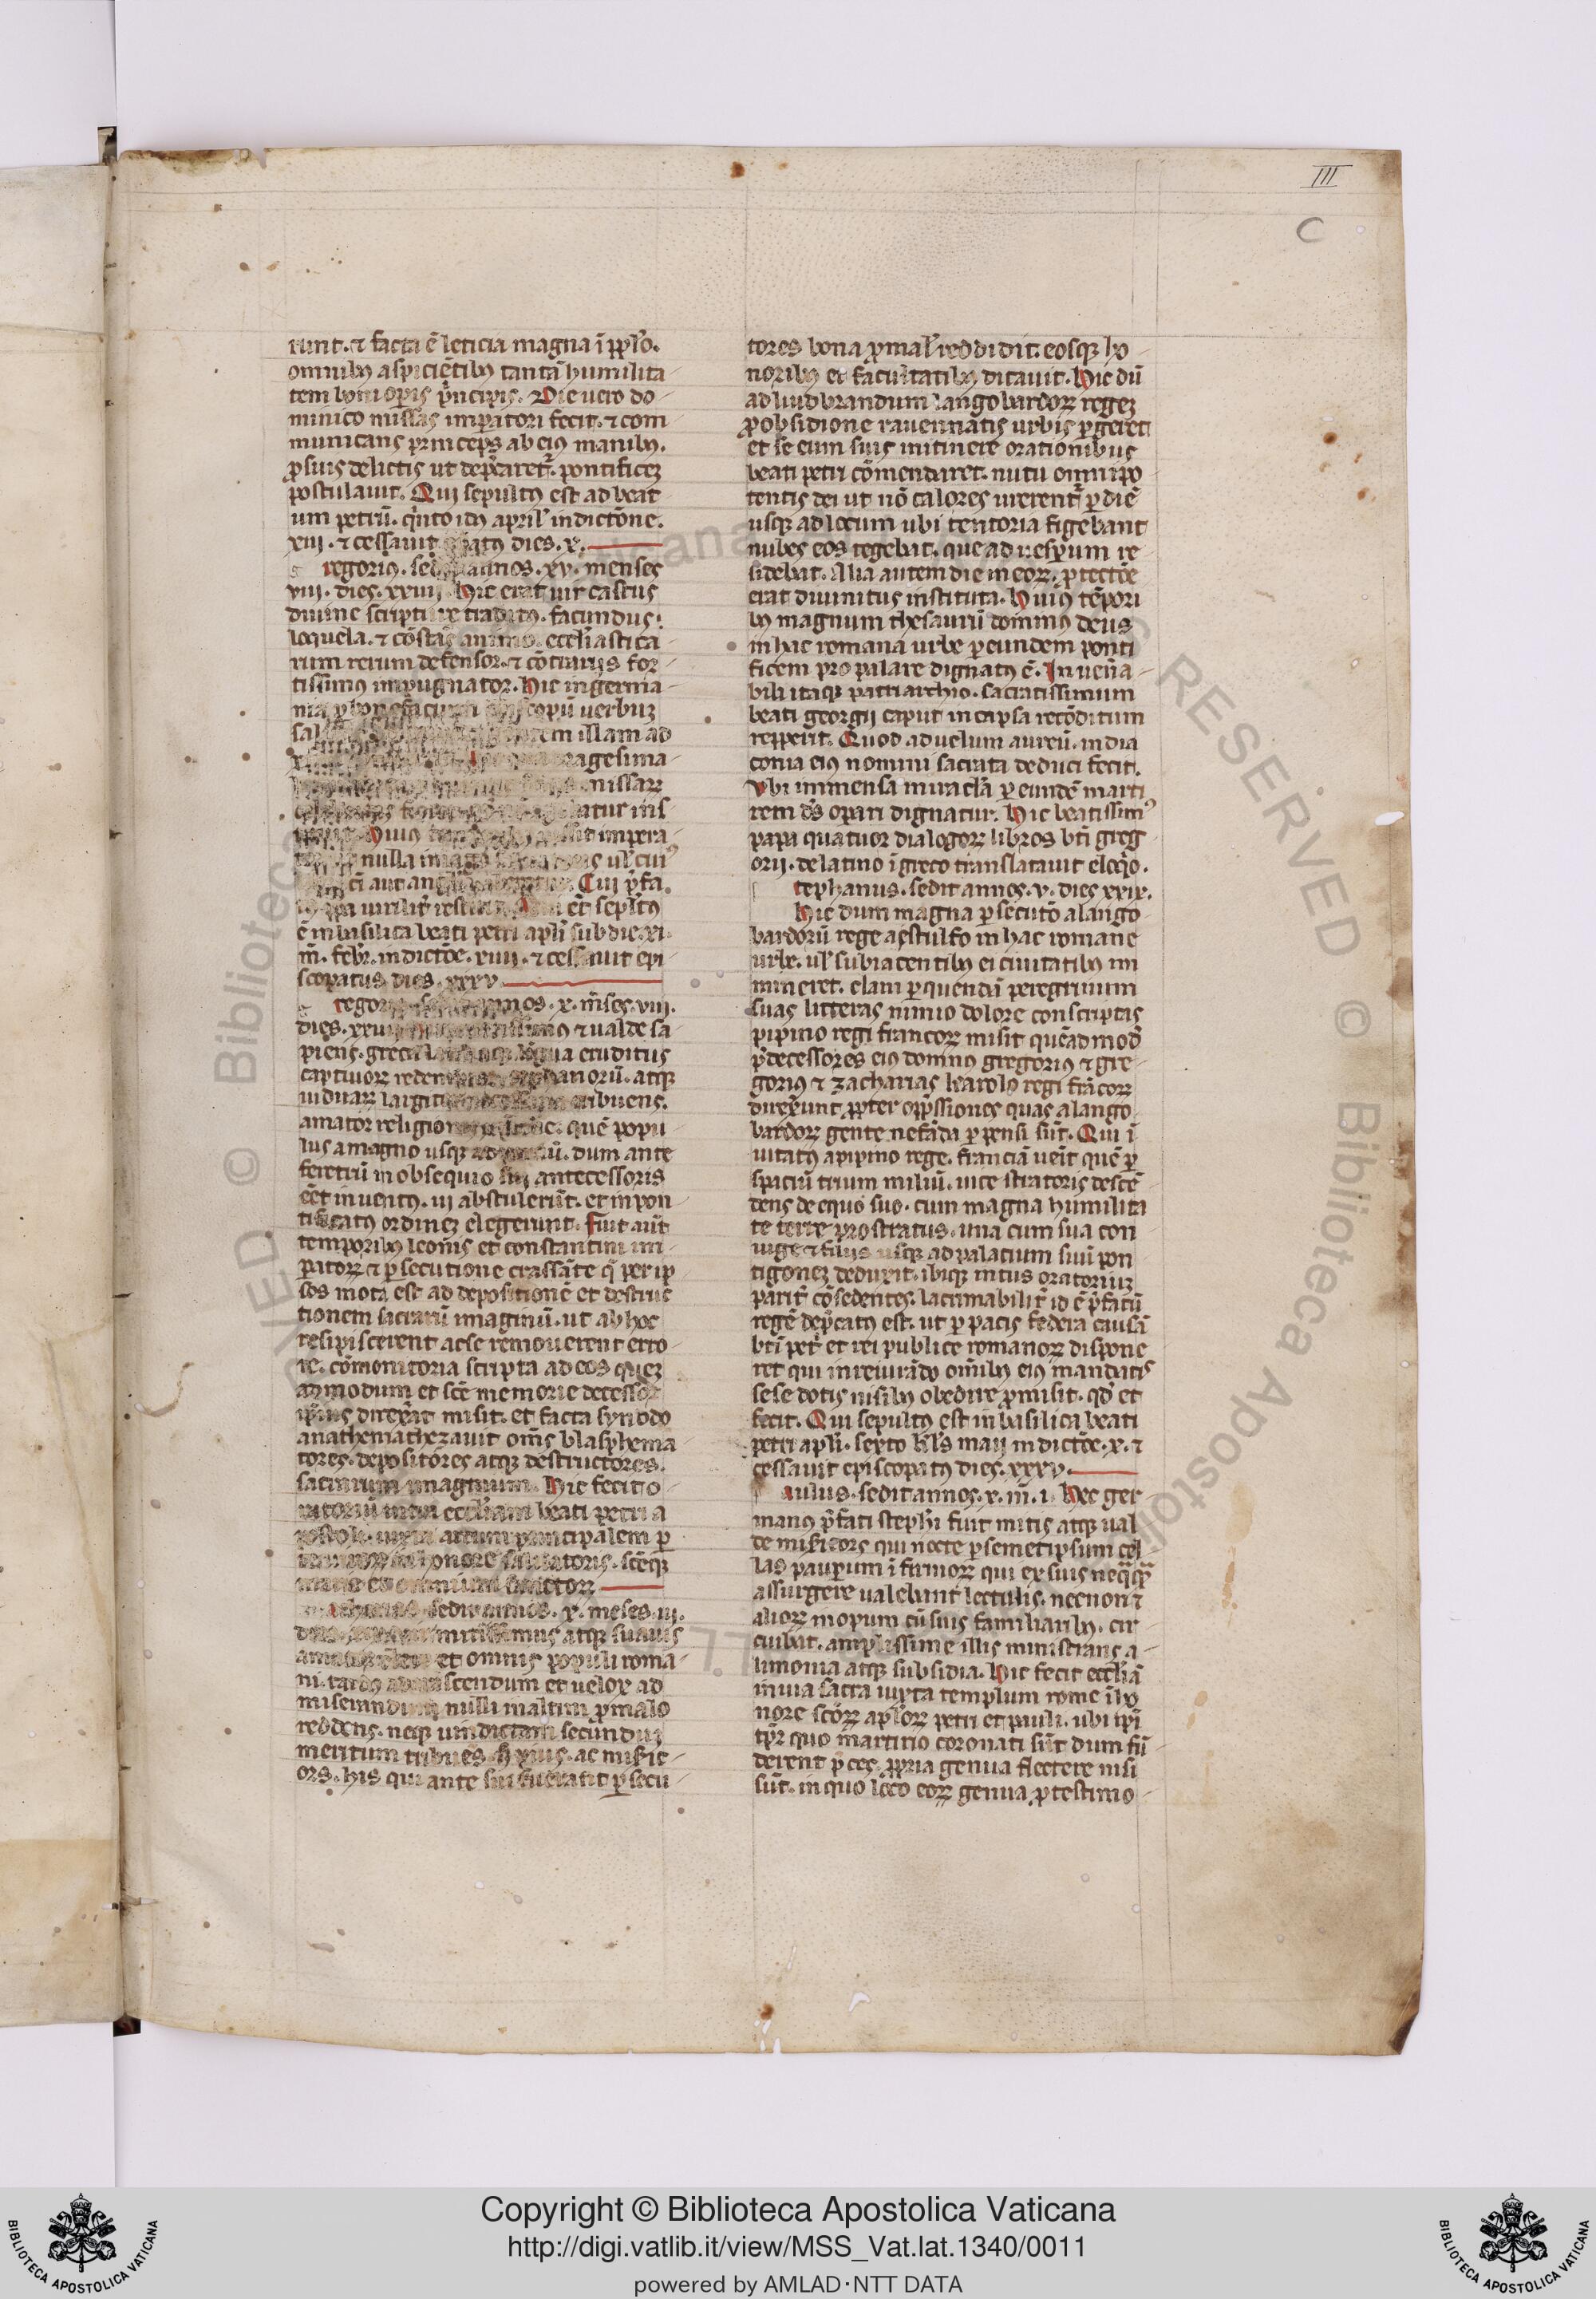 III
C
runt. ⁊ facta ē leticia magna ī pplo.
omnibꝰ aspiciētibꝰ tantā humilita-
tem boni opis pͥncipis. Die uero do-
minico missas impatori fecit. ⁊ com
municans princeps ab eiꝰ manibꝰ.
ꝓ suis delictis ut depcaretᷣ. pontificeʒ
postulauit. Qui sepultꝰ est ad beat
um petrū. qͥnto idꝰ april' indictōne.
xiii. ⁊ cessauit dies. x.
regorius. sed annos. xv. menses
viii. dies. xxiiii. Hic erat uir castus
diuine scripture traditꝰ. facundus.
loquela. ⁊ cōstās animo. eccl'iastica
rum rerum defensor. ⁊ cōtrariis for-
tissimus inpugnator. Hic in germa-
nia ꝑ bonefacium copū uerbuʒ
sal em illam ad
agesima-
missaꝝ
atur ins
Huius impera-
nulla imago ul' cuiꝰ
aut Cui pͤfa
uirilit' et sepl'tꝰ
ē in basilica beati petri apl'i sub die. xi.
m̄. feb'r. indictōe. xiiii. ⁊ cessauit epi-
scopatus dies. xxxv
regor annos. x. m̄ses. viii.
dies. xxiiii ⁊ ualde sa-
piens. greca lingua eruditus
captiuoꝝ redem phanorū. atqꝫ
uiduaꝝ largit tribuens.
amator religion que popu-
lus a magno usqꝫ ad dum ante
feretrū in obsequio sui antecessoris
eēt inuentꝰ. ui abstulerūt. et in pon-
tificatꝰ ordineʒ elegerunt. Fuit aūt
temporibꝰ leonis et constantini im-
peratoꝝ ⁊ ꝑsecutione crassāte q̄ per ip
sos mota est ad depositionē et destruc
tionem sacrarū imaginū. ut ab hoc
resipiscerent ac se remouerent erro-
re. cōmonitoria scripta ad eos queʒ
admodum et scē memorie decessor
ipsius direxerat misit. et facta synodo
anathemathezauit om̄s blasphema-
tores. depositores atqꝫ destructores.
sacrarum imaginum. Hic fecit o
ratoriū intra eccl'iam beati petri a
postoli. iuxta arcum principalem ꝑ
honore saluatoris. scēqꝫ
marie omnium sanctoꝝ
sedit annos. x. meses. iii.
mitissimus atqꝫ suauis
et omnis populi roma-
ni. tardꝰ ad irascendum et velox ad
miserandum nulli malum ꝓ malo
reddens. neqꝫ uindictam secunduʒ
meritum tribuēs. piꝰ ac miseric-
ors. his qui ante sui fuerant ꝑsecu-
tores bona ꝓ mal' reddidit. eosqꝫ ho-
noribꝰ et facultatibꝰ ditauit. Hic dū
ad liudbrandum langobardoꝝ regeʒ
ꝓ obsidione rauennatis urbis ꝑgeret
et se cum suis in itinere orationibus
beati petri cōmendaret. nutu omnipo
tentis dei ut nō calores urerentᷣ ꝑ diē
usqꝫ ad locum ubi tentoria figebant
nubes eos tegebat. que ad uesꝑum re-
sidebat. Alia autem die in eoꝝ. ꝓtectōe
erat diuinitus instituta. Huius tēpori
bꝰ magnum thesaurū dominus deus
in hac romana urbe ꝑ eundem ponti
ficem propalare dignatꝰ ē. In uen̄a-
bili itaqꝫ patriarchio. sacratissimum
beati georgii caput in capsa recōditum
repperit. Quod ad uelum aureū. in dia
conia eiꝰ nomini sacrata deduci fecit.
Vbi immensa miracl'a ꝑ eundē marti
rem d's operari dignatur. Hic beatissimꝰ
papa quatuor dialogoꝝ libros bti greg
orii. de latino ī greco translatauit eloqͥo.
tephanus. sedit annos. v. dies xxix.
Hic dum magna ꝑsecutō a lango-
bardorū rege aestulfo in hac romane
urbe. ul' subiacentibꝰ ei ciuitatibꝰ im
mineret. clam ꝑ quendā peregrinum
suas litteras nimio dolore conscriptas
pipino regi francoꝝ misit quēadmodꝰ
p̄decessores eiꝰ domnus gregorius ⁊ gre-
gorius ⁊ zacharias karolo regi frācoꝝ
direxerunt ꝓpter opp̄ssiones quas a lango
bardoꝝ gente nefāda ꝑpensi sūt. Qui ī
uitatꝰ a pipino rege. franciā uēit quē ꝑ
spatiū trium miliū. uice stratoris descē-
dens de equo suo. cum magna humilita
te terre prostratus. una cum sua con
iuge ⁊ filiis usqꝫ ad palacium suū pon
tigoneʒ deduxit. ibiqꝫ intus oratoriuʒ
parit' cōsedentes. lacrimabilit' id ē p̄fatū
regē dep̄catꝰ est. ut ꝑ pacis federa causā
bti petri et rei publice romanoꝝ dispone
ret qui in reiurādo om̄ibꝰ eiꝰ mandatis
sese totis nisibꝰ obedire ꝓmisit. qd' et
fecit. Qui sepultꝰ est in basilica beati
petri apl'i. sexto kl's maii indictōe. x. ⁊
cessauit episcopatꝰ dies. xxxv.
aulus. sedit annos. x. m̄. i. Hec ger
manus p̄fati steph'i fuit mitis atqꝫ ual
de misericors qui nocte ꝑ semetipsum cel
las pauꝑum ī firmoꝝ qui ex suis neqͣqͣ
assurgere ualebant lectulis. necnon ⁊
alioꝝ inopum cū suis familiaribꝰ. cir
cuibat. amplissime illis ministrans a-
limonia atqꝫ subsidia. Hic fecit eccl'iā
in uia sacra iuxta templum rome ī ho
nore scōꝝ apl'oꝝ petri et pauli. ubi ipi
tp̄r quo martirio coronati sūt dum fū-
derent p̄ces. ꝓpria genua flectere uisi
sūt. in quo loco eoꝝ genua. ꝓ testimo-
Copyright © Biblioteca Apostolica Vaticana
http://digi.vatlib.it/view/MSS_Vat.lat.1340/0011
powered by AMLAD·NTT DATA
BIBLIOTECA APOSTOLICA VATICANA
BIBLIOTECA APOSTOLICA VATICANA